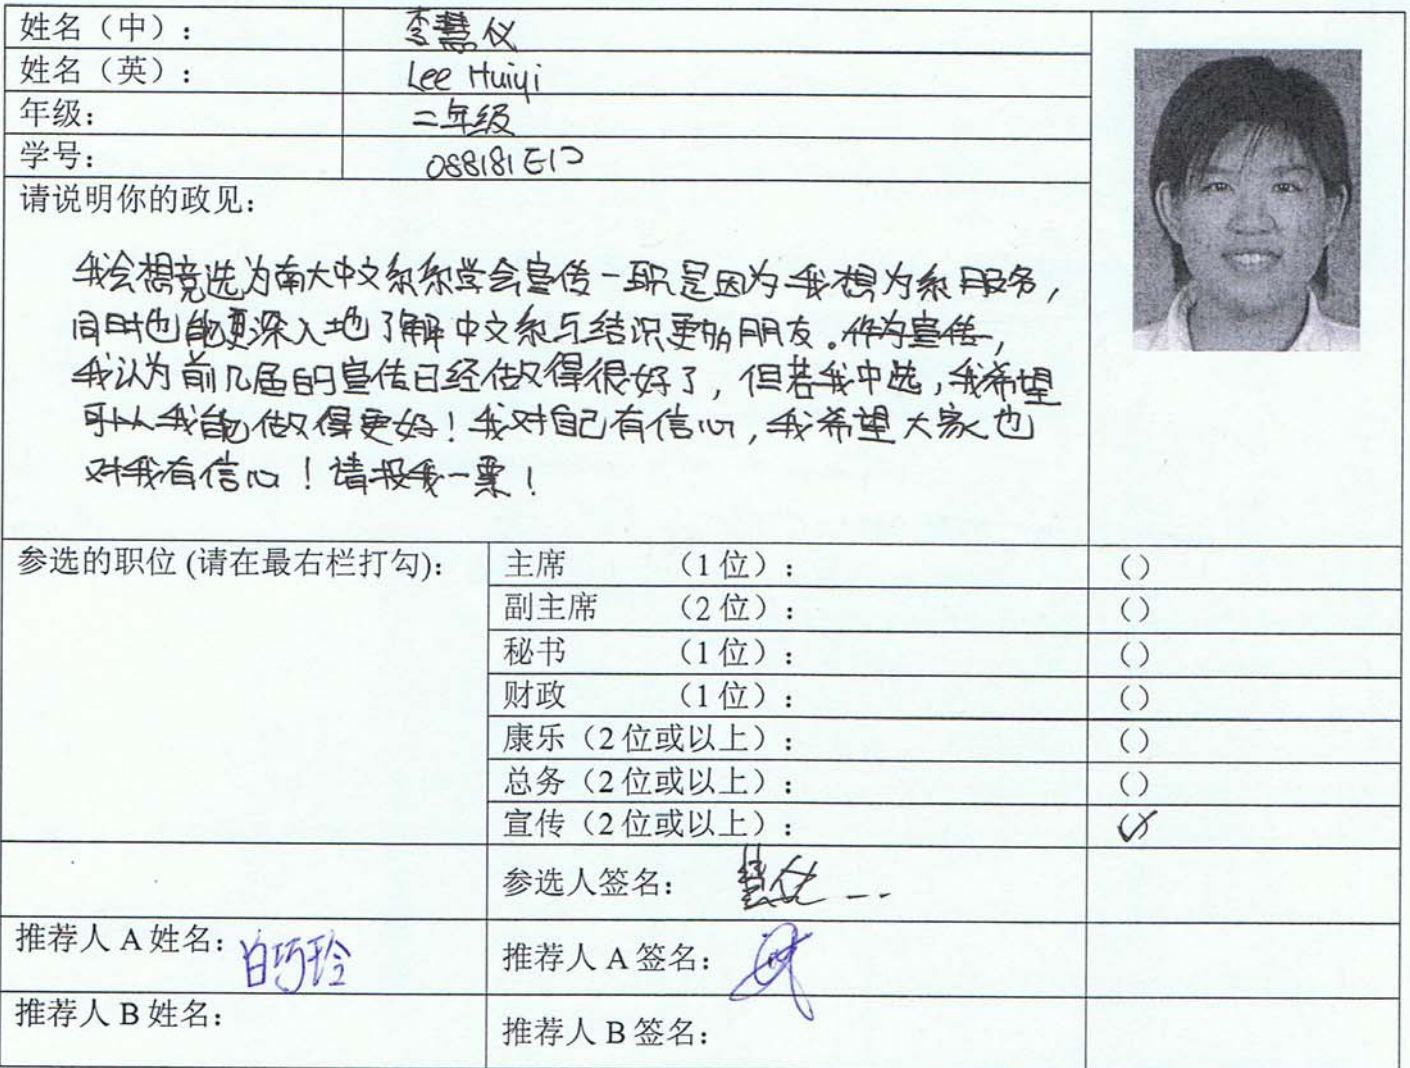 姓名（中）： 李慧仪
姓名（英）： Lee Huiyi
年级： 二年级
学号： 088181E12
请说明你的政见：
我会想竞选为南大中文系系学会宣传一职是因为我想为系服务，
同时也能更深入地了解中文系与结识更多朋友。作为宣传，
我认为前几届的宣传已经做得很好了，但若我中选，我希望
可以我能做得更好！我对自己有信心，我希望大家也
对我有信心！请投我一票！
参选的职位 (请在最右栏打勾)：
主席 （1 位）： ( )
副主席 （2 位）： ( )
秘书 （1 位）： ( )
财政 （1 位）： ( )
康乐（2 位或以上）： ( )
总务（2 位或以上）： ( )
宣传（2 位或以上）： (✓)
参选人签名： 慧仪
推荐人 A 姓名： 白巧玲
推荐人 A 签名：
推荐人 B 姓名：
推荐人 B 签名：